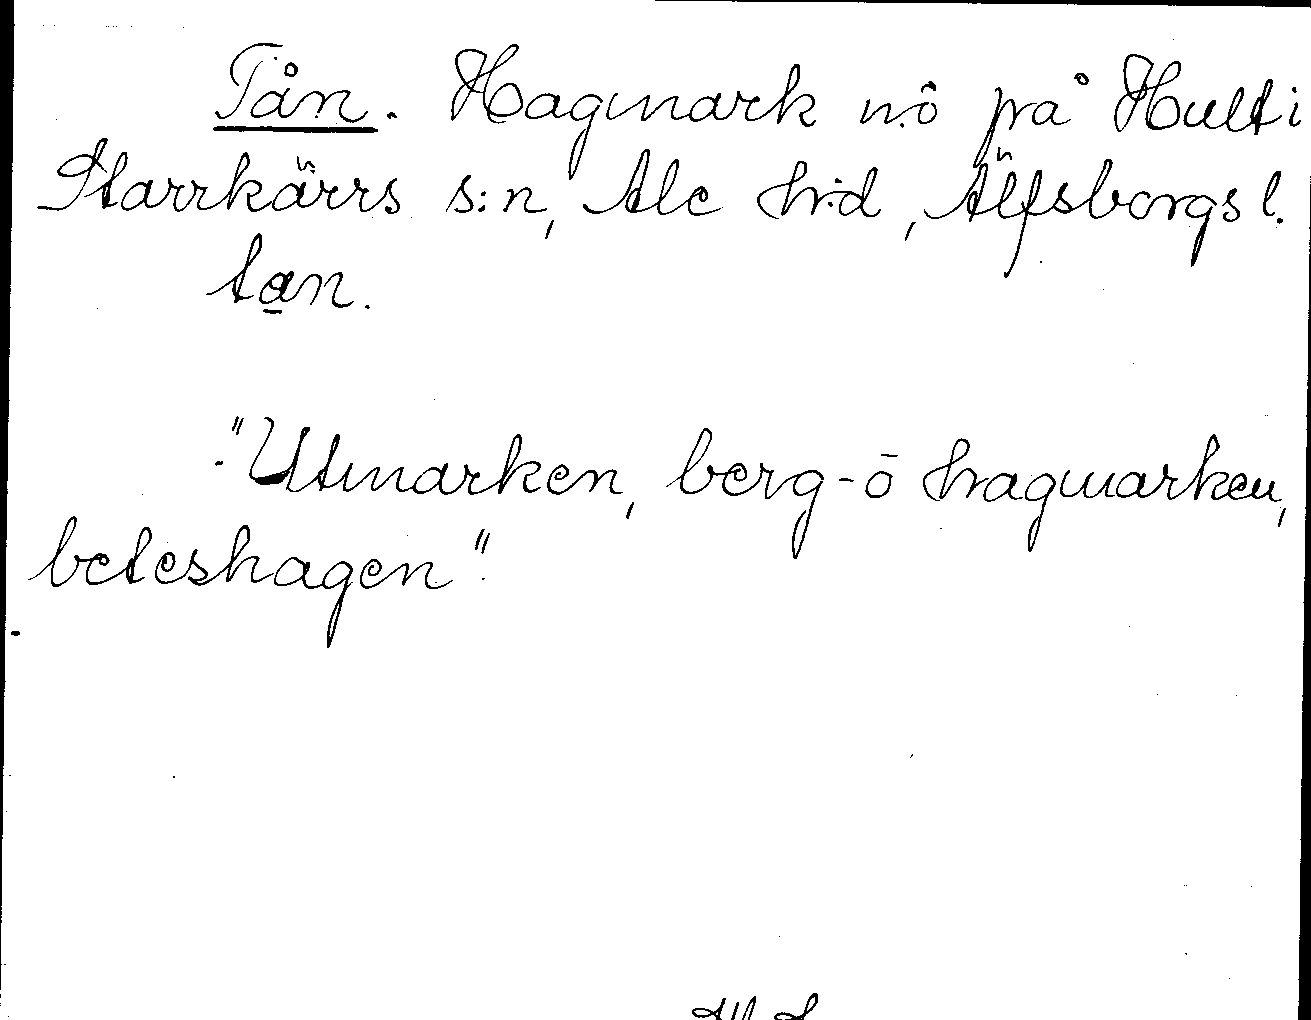 Tån. Hagmark n.ö på Hult i
Starrkärrs s:n, Ale h:d, Älfsborgs l.
tan.
"Utmarken, berg- ō hagmarken,
beteshagen".